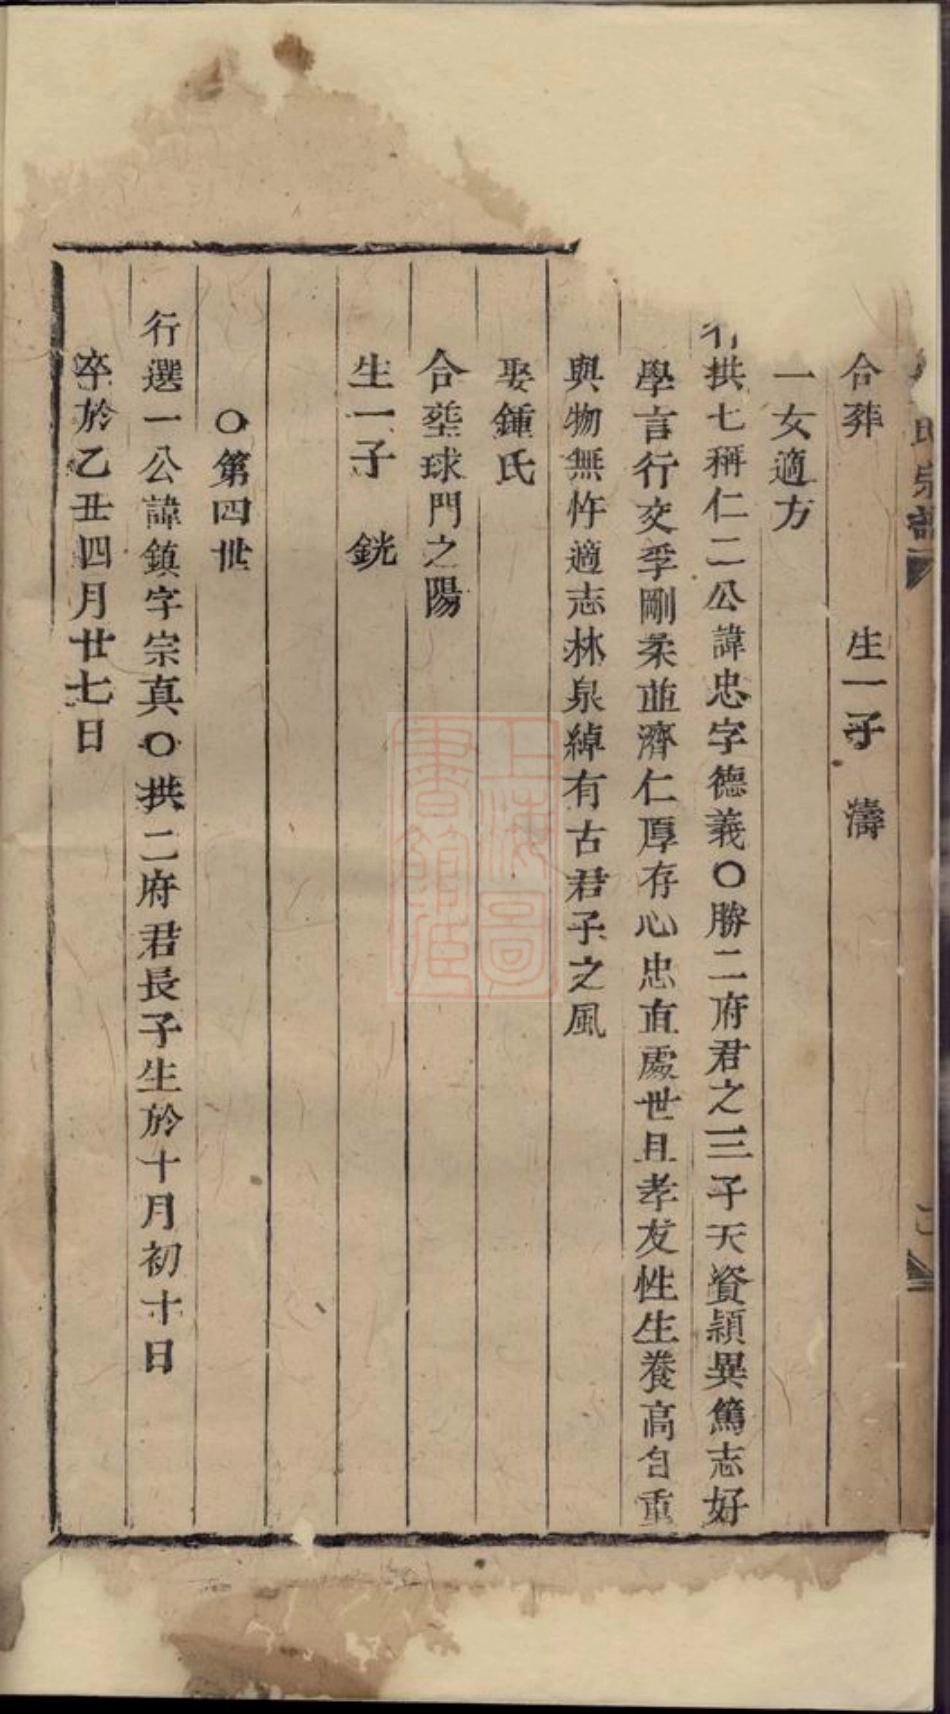 氏宗譜
合葬　生一子　濤
一女適方
行拱七稱仁二公諱忠字德義〇勝二府君之三子天資穎異篤志好
學言行交孚剛柔並濟仁厚存心忠直處世且孝友性生養高自重
與物無忤適志林泉綽有古君子之風
娶鍾氏
合塟球門之陽
生一子　銧
〇第四世
行選一公諱鎮字宗真〇拱二府君長子生於十月初十日
卒於乙丑四月廿七日
上海圖書館藏